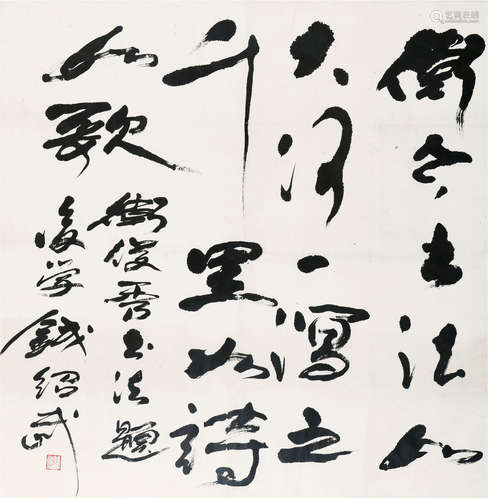 衛公書法如
大河一瀉之
千里如詩
如歌
衛俊秀書法題
後學錢紹武